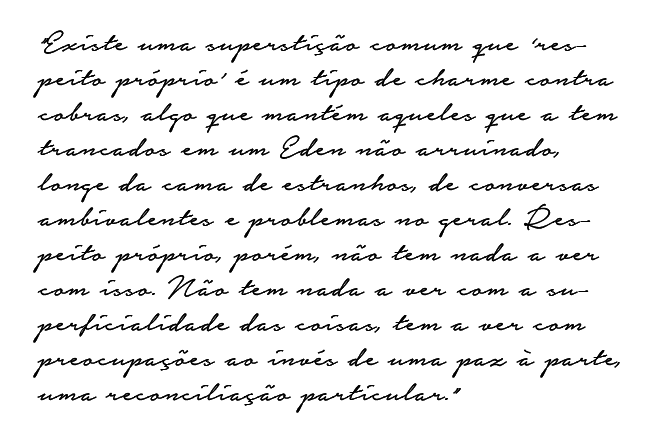 "Existe uma superstição comum que 'res-
peito próprio' é um tipo de charme contra
cobras, algo que mantém aqueles que a tem
trancados em um Eden não arruinado,
longe da cama de estranhos, de conversas
ambivalentes e problemas no geral. Res-
peito próprio, porém, não tem nada a ver
com isso. Não tem nada a ver com a su-
perficialidade das coisas, tem a ver com
preocupações ao invés de uma paz à parte,
uma reconciliação particular."